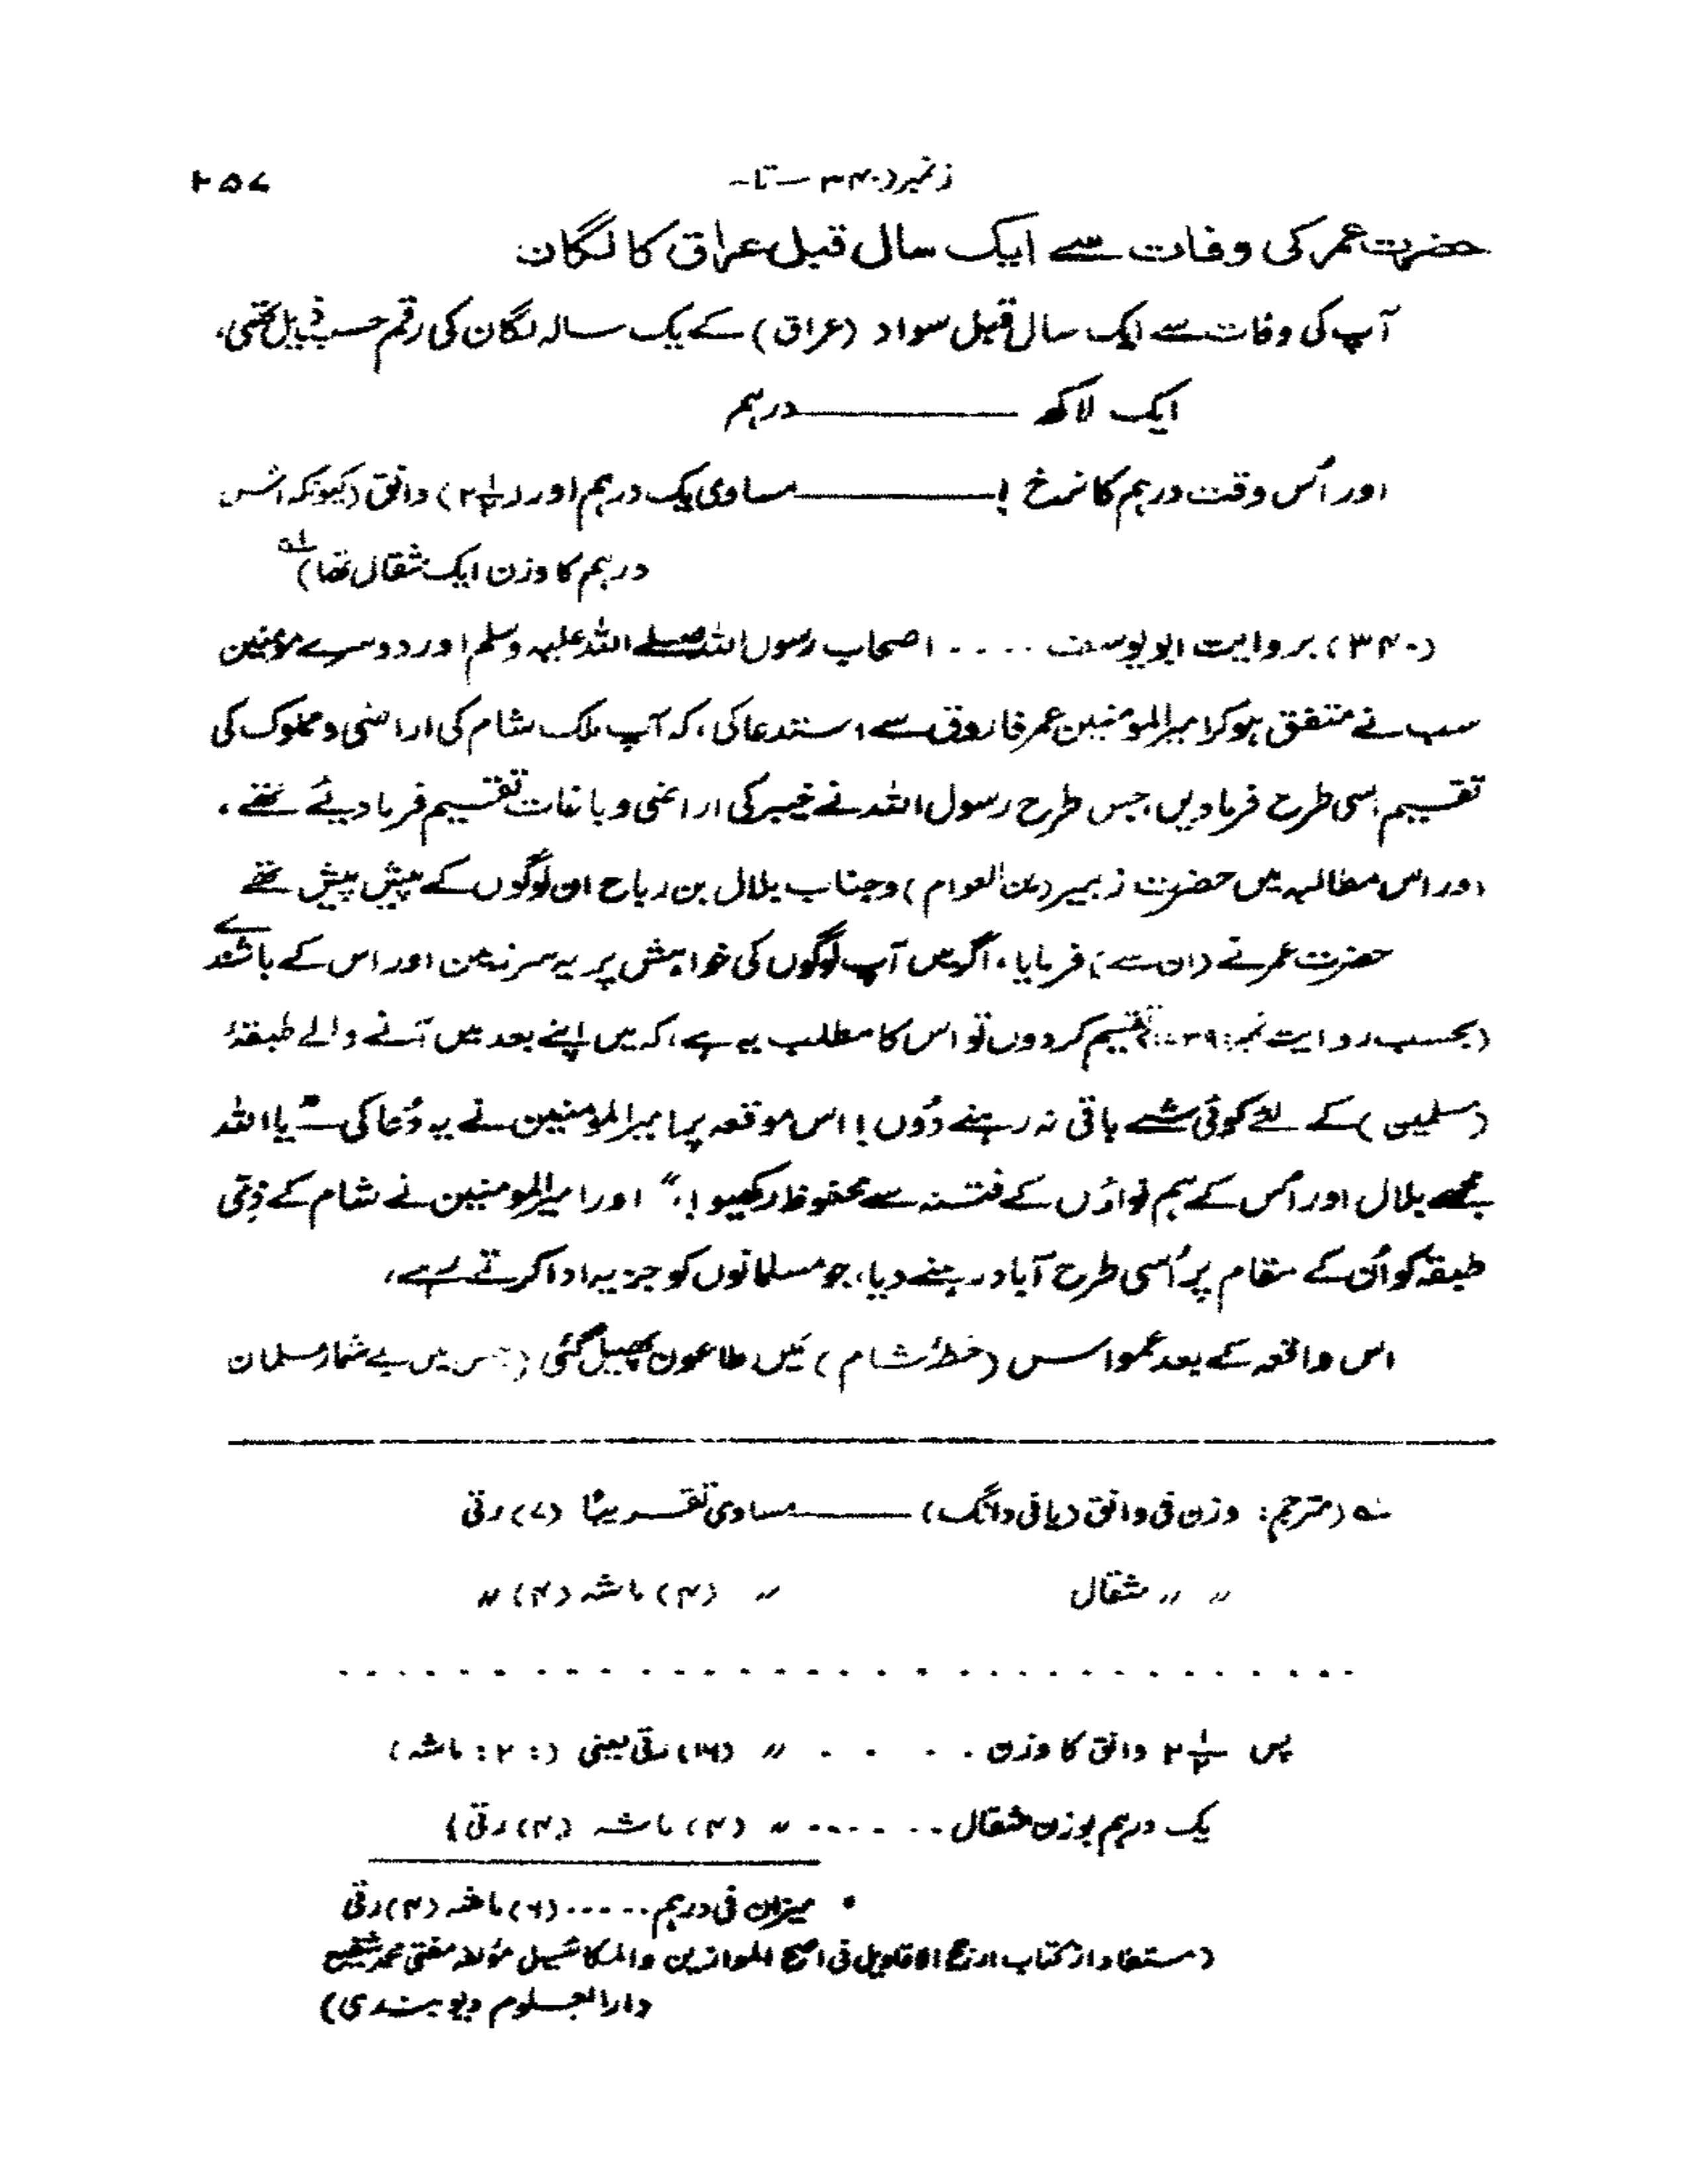 زنمبر (۳۴۰ — تا —
۲۵۷
حضرت عمر کی وفات سے ایک سال قبل عراق کا لگان
آپ کی وفات سے ایک سال قبل سواد (عراق) کے یک سالہ لگان کی رقم حسب ذیل تھی،
ایک لاکھ ——— درہم
اور اُس وقت درہم کا نرخ ! ——— مساوی یک درہم اور (۲½) دانق (کیونکہ اُس
درہم کا وزن ایک مثقال تھا) لہ
(۳۴۰) بروایت ابو یوسف .... اصحاب رسول اللہ صلے اللہ علیہ وسلم اور دوسرے مومنین
سب نے متفق ہو کر امیر المومنین عمر فاروق سے استدعا کی، کہ آپ ملک شام کی اراضی و مملوک کی
تقسیم اسی طرح فرما دیں، جس طرح رسول اللہ نے خیبر کی اراضی و باغات تقسیم فرما دیئے تھے،
اور اس مطالبہ میں حضرت زبیر (بن العوام) و جناب بلال بن رباح ان لوگوں کے پیش پیش تھے
حضرت عمر نے (ان سے) فرمایا، اگر میں آپ لوگوں کی خواہش پر یہ سرزمین اور اس کے باشندے
(بحسب روایت نمبر : ۳۹) تقسیم کر دوں تو اس کا مطلب یہ ہے، کہ میں اپنے بعد میں آنے والے طبقۂ
(مسلمین) کے لئے کوئی شے باقی نہ رہنے دُوں! اس موقعہ پر امیر المومنین نے یہ دُعا کی — "یا اللہ
مجھے بلال اور اُس کے ہم نواؤں کے فتنہ سے محفوظ رکھیو!،" اور امیر المومنین نے شام کے ذِمّی
طبقہ کو اُن کے مقام پر اُسی طرح آباد رہنے دیا، جو مسلمانوں کو جزیہ ادا کرتے رہے،
اس واقعہ کے بعد عمواس (خطۂ شام) میں طاعون پھیل گئی (جس میں بے شمار مسلمان
لہ (مترجم: وزن فی دانق (یا فی دانگ) ——— مساوی تقریباً (۷) رتی
〃 〃 مثقال 〃 (۴) ماشہ (۴) 〃
. . . . . . . . . . . . . . . . . . . . . . . . . . . . . .
پس ۲½ دانق کا وزن . . . . 〃 (۱۶) رتی یعنی (: ۲ : ماشہ)
یک درہم بوزن مثقال ...... 〃 (۴) ماشہ (۴) رتی)
• میزان فی درہم ...... (۶) ماشہ (۴) رتی
(مستفاد از کتاب ارجح الاقاویل فی اصح الموازین والمکائیل مؤلفہ مفتی محمد شفیع
دار العلوم دیوبندی)